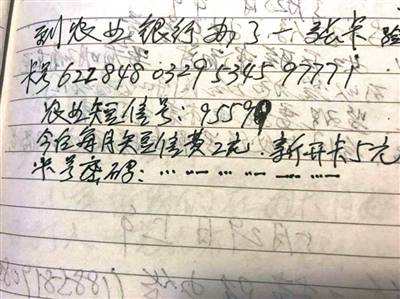 到农业银行办了一张卡
卡号622848 0329 5345 97771
农业短信号：95599
今后每月短信费2元．新开卡5元
卡号密码：